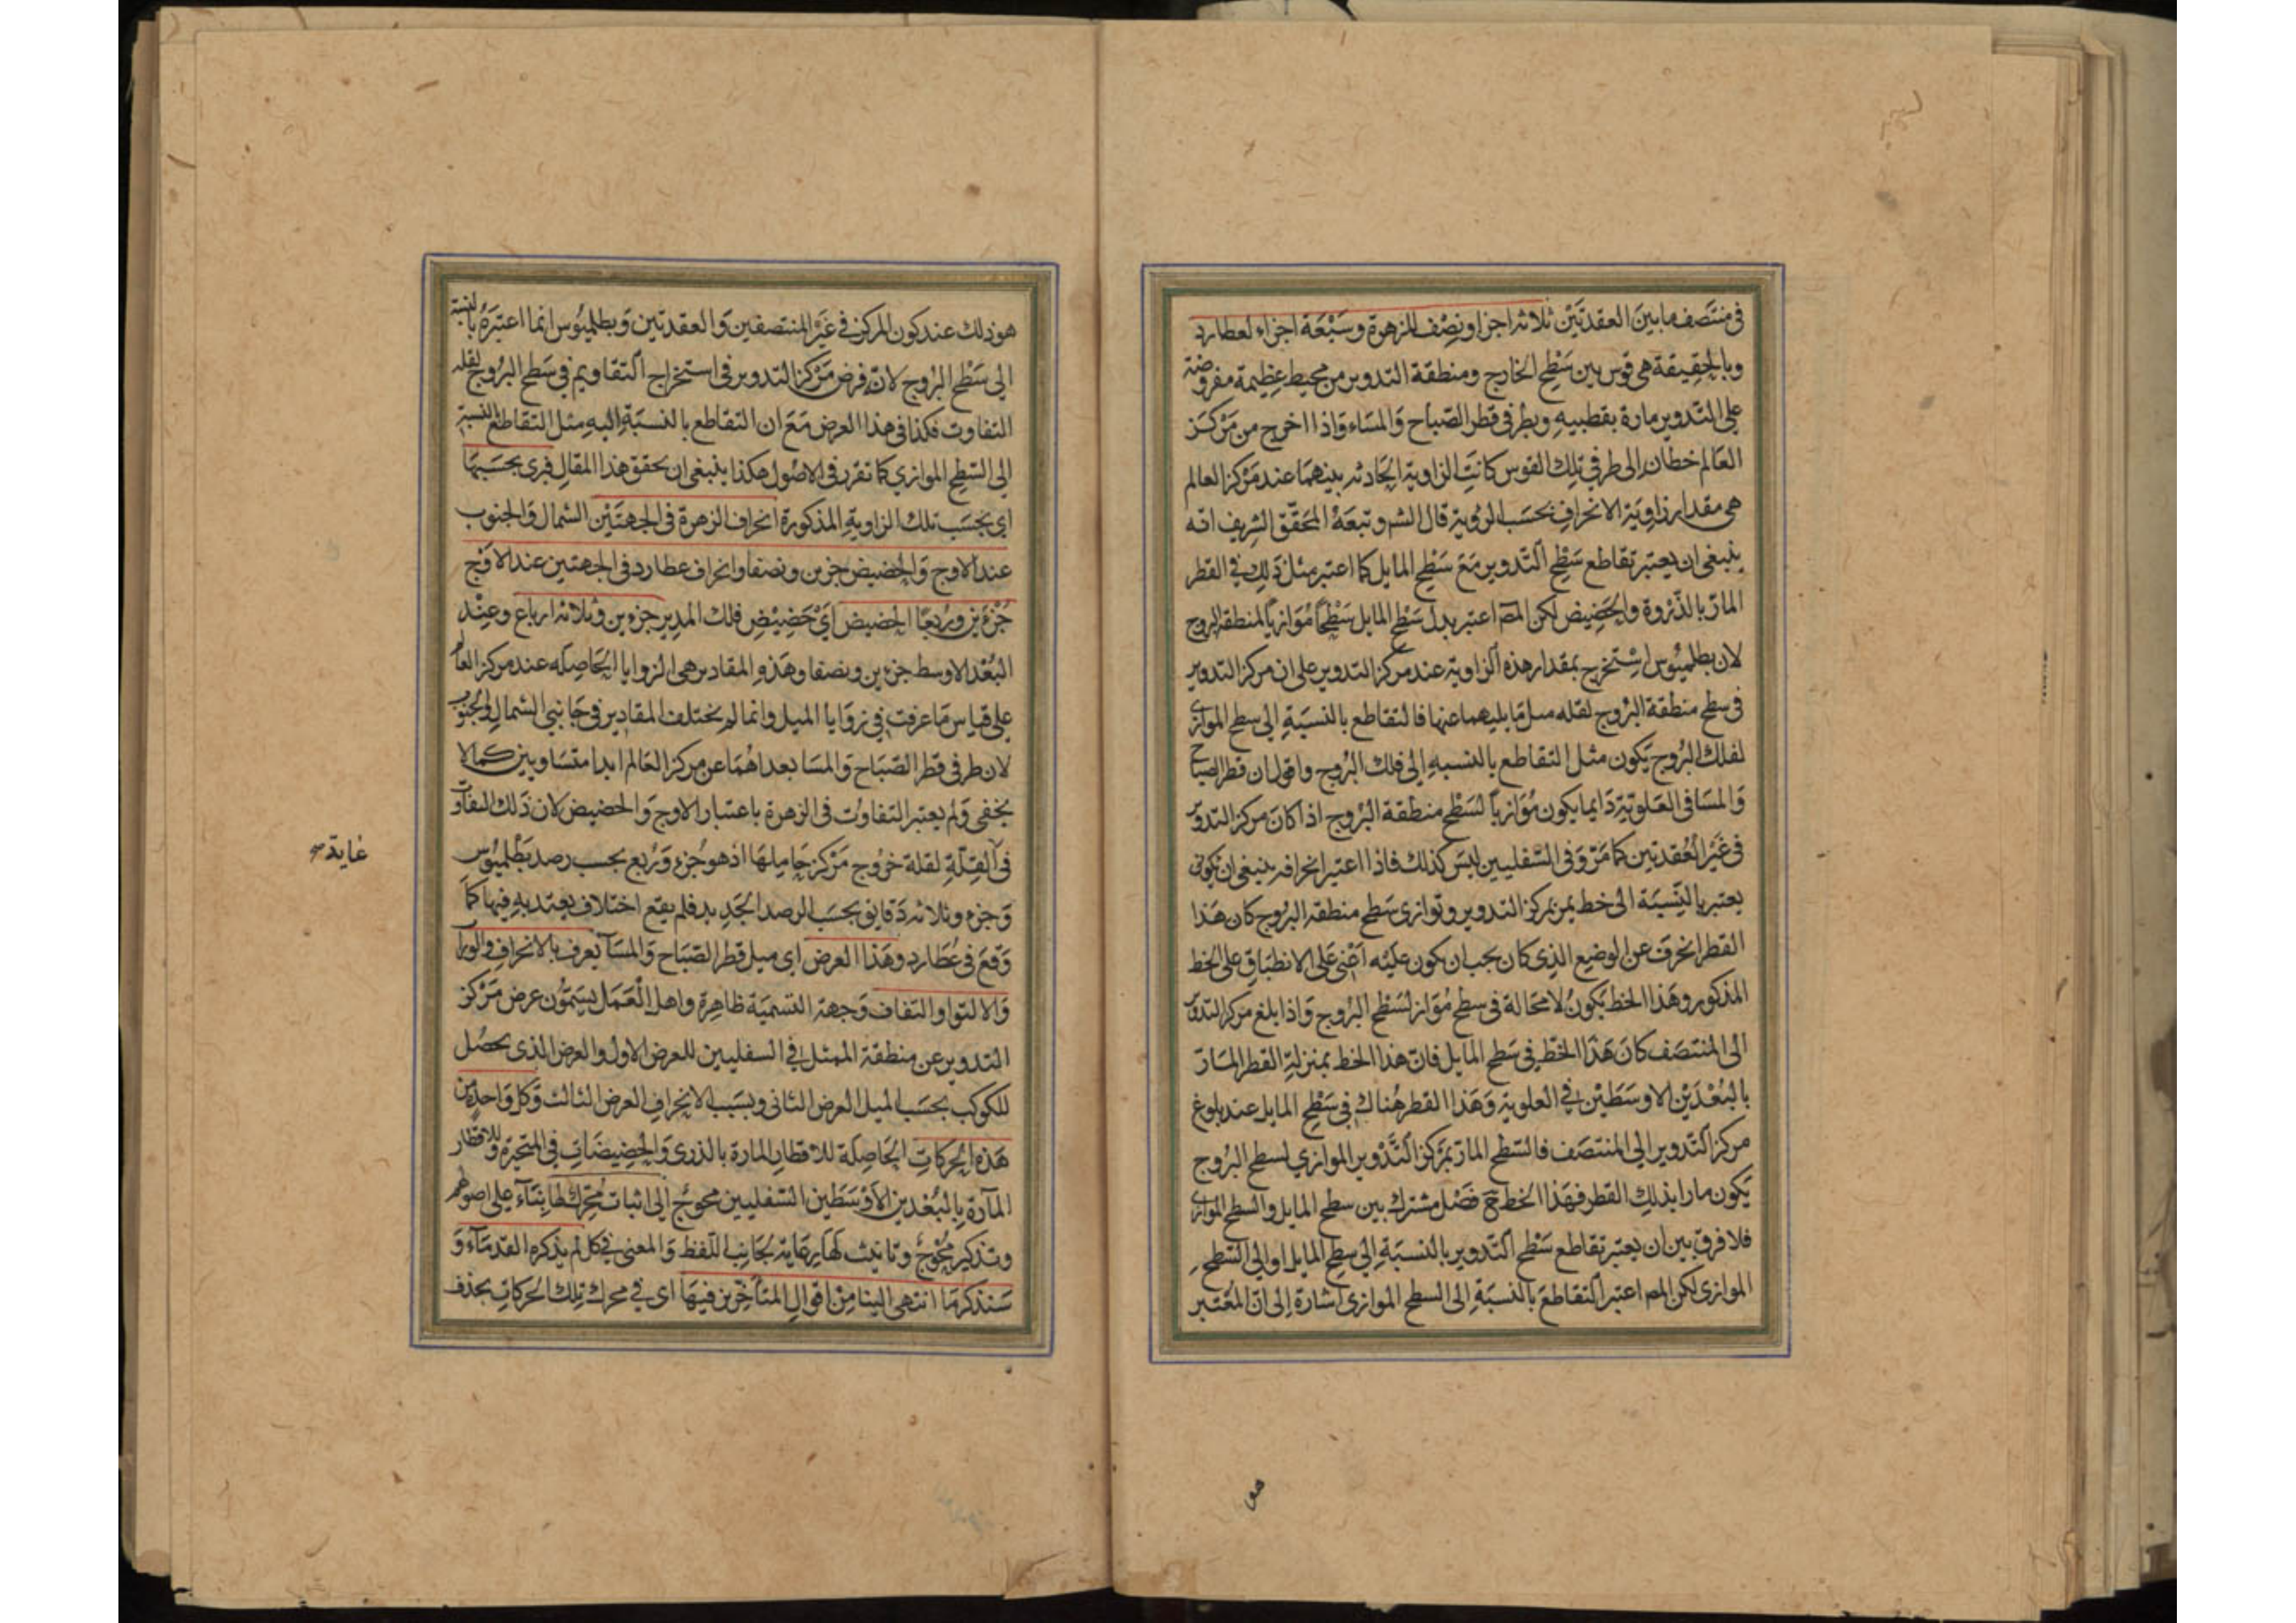 في منتصف ما بين العقدتين ثلاثة اجزا ونصف للزهرة وسبعة اجزاء لعطارد
وبالحقيقة هي قوس بين سطح الخارج ومنطقة التدوير من محيط عظيمة مفروضة
على التدوير مارة بقطبيه وبطرفي قطر الصباح والمساء واذا اخرج من مركز
العالم خطان الى طرفي تلك القوس كانت الزاوية الحادثة بينهما عند مركز العالم
هي مقدار زاوية الانحراف بحسب الروية قال الشر وتبعه المحقق الشريف انه
ينبغي ان يعتبر تقاطع سطح التدوير مع سطح المايل كما اعتبر مثل ذلك في القطر
المار بالذروة والحضيض لكن المص اعتبر بدل سطح المايل سطحا موازيا لمنطقة البروج
لان بطلميوس استخرج بمقدار هذه الزاوية عند مركز التدوير على ان مركز التدوير
في سطح منطقة البروج لقلة ميل مايليهما عنها فالتقاطع بالنسبة الى سطح الموازي
لفلك البروج يكون مثل التقاطع بالنسبة الى فلك البروج واقول ان قطر الصباح
والمسا في العلوية دايما يكون موازيا لسطح منطقة البروج اذا كان مركز التدوير
في غير العقدتين كما مر وفي السفليين ليس كذلك فاذا اعتبر انحرافه ينبغي ان يكون
يعتبر بالنسبة الى خط يمر بمركز التدوير وتوازي سطح منطقة البروج كان هذا
القطر انحرف عن الوضع الذي كان يجب ان يكون عليه اعني على الانطباق على الخط
المذكور وهذا الخط يكون لا محالة في سطح مواز لسطح البروج واذا بلغ مركز التدوير
الى المنتصف كان هذا الخط في سطح المايل فان هذا الخط بمنزلة القطر المار
بالبعدين الاوسطين في العلوية وهذا القطر هناك في سطح المايل عند بلوغ
مركز التدوير الى المنتصف فالسطح المار بمركز التدوير الموازي لسطح البروج
يكون مارا بذلك القطر فهذا الخط ح فصل مشترك بين سطح المايل والسطح الموازي
فلا فرق بين ان يعتبر تقاطع سطح التدوير بالنسبة الى سطح المايل او الى السطح
الموازي لكن المص اعتبر التقاطع بالنسبة الى السطح الموازي اشارة الى ان المعتبر
هو ذلك عند كون المركز في غير المنتصفين والعقدتين وبطلميوس انما اعتبره بالنسبة
الى سطح البروج لانه فرض مركز التدوير في استخراج التقاويم في سطح البروج لقلة
التفاوت فكذا في هذا العرض مع ان التقاطع بالنسبة اليه مثل التقاطع بالنسبة
الى السطح الموازي كما تقرر في الاصول هكذا ينبغي ان يحقق هذا المقال فيرى بحسبها
اي بحسب تلك الزاوية المذكورة انحراف الزهرة في الجهتين الشمال والجنوب
عند الاوج والحضيض جزين ونصفا وانحراف عطارد في الجهتين عند الاوج
جزءين وربعا الحضيض اي حضيض فلك المدير جزءين وثلاثة ارباع وعند
البعد الاوسط جزءين ونصفا وهذه المقادير هي الزوايا الحاصلة عند مركز العالم
على قياس ما عرفت في زوايا الميل وانما لم يختلف المقادير في جانبي الشمال والجنوب
لان طرفي قطر الصباح والمسا بعداهما عن مركز العالم ابدا متساويين كما لا
يخفى ولم يعتبر التفاوت في الزهرة باعتبار الاوج والحضيض لان ذلك التفاوت
في القلة لقلة خروج مركز حاملها اذ هو جزء وربع بحسب رصد بطلميوس
غاية صح
وجزء وثلاثة دقايق بحسب الرصد الجديد فلم يقع اختلاف يعتد به فيها كما
وقع في عطارد وهذا العرض اي ميل قطر الصباح والمسآ يعرف بالانحراف والوراب
والالتوا والتفاف وجهة التسمية ظاهرة واهل العمل يسمون عرض مركز
التدوير عن منطقة الممثل في السفليين للعرض الاول والعرض الذي يحصل
للكوكب بحسب الميل العرض الثاني وبسبب الانحراف العرض الثالث وكل واحد من
هذه الحركات الحاصلة للاقطار المارة بالذرى والحضيضات في المتحيرة وللاقطار
المآرة بالبعدين الاوسطين السفليين محوج الى اثبات محرك لها بنآء على اصولهم
وتذكير محوج وتانيث لها رعاية لجانب اللفظ والمعنى في كل لم يذكره القدمآء و
سنذكر ما انتهى الينا من اقوال المتأخرين فيها اي في محرك تلك الحركات بحذف